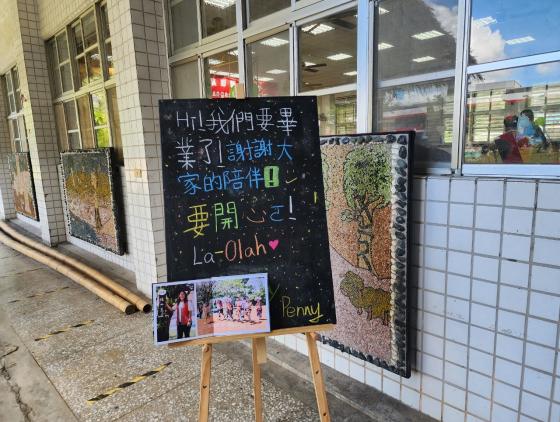 Hi!我們要畢
業了!謝謝大
家的陪伴!
要開心ㄛ!
La-Olah♥
Penny